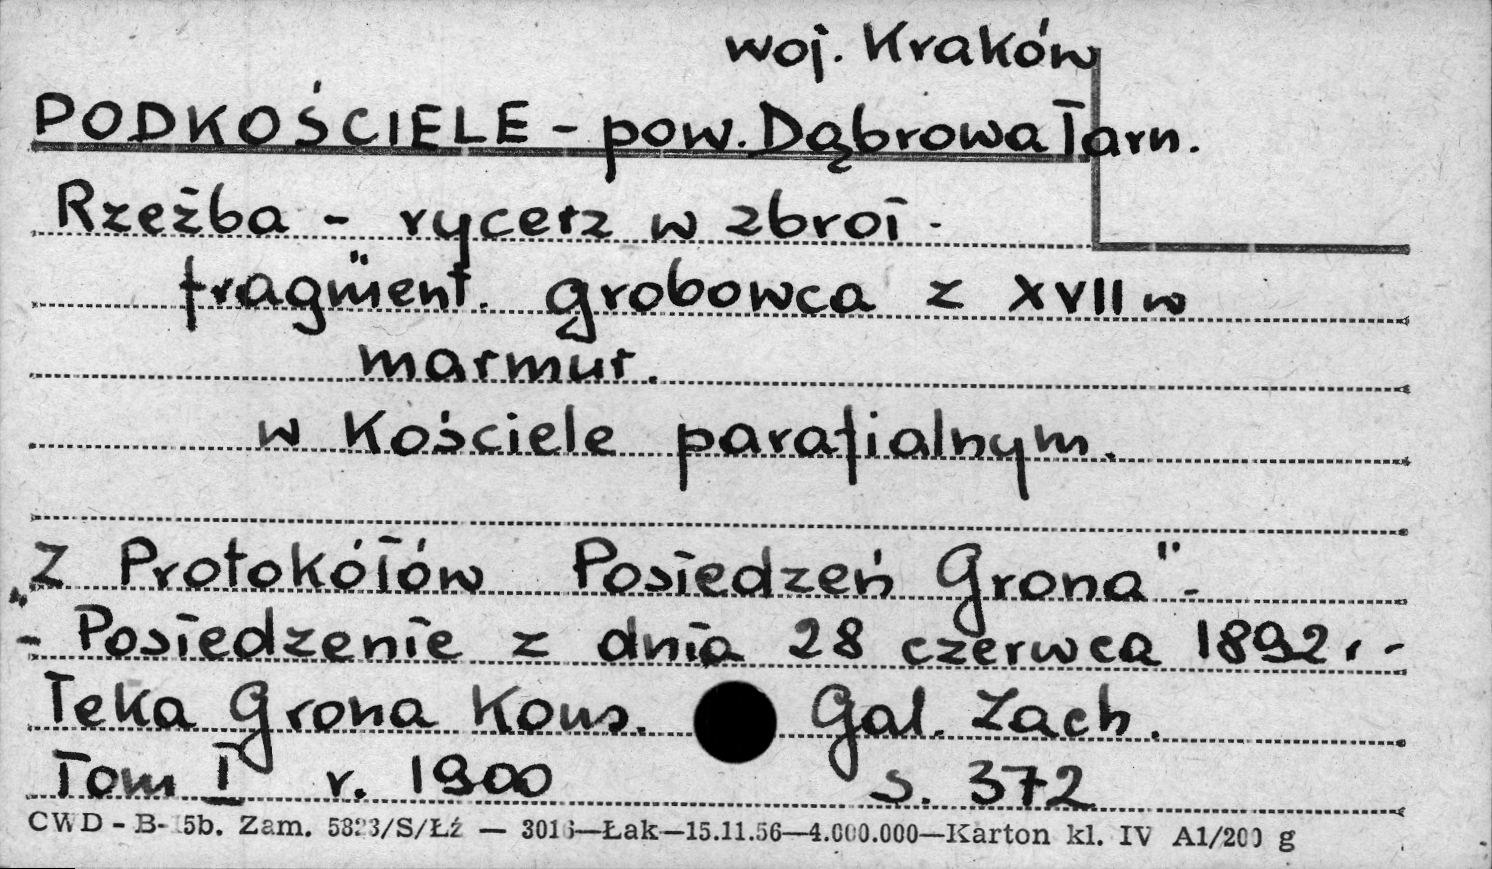 woj. Kraków
PODKOŚCIELE - pow. Dąbrowa Tarn.
Rzeźba - rycerz w zbroi -
fragment. grobowca z XVII w
marmur.
w Kościele parafialnym.
„Z Protokółów Posiedzeń Grona" -
- Posiedzenie z dnia 28 czerwca 1892 r -
Teka Grona Kons. Gal. Zach.
Tom I r. 1900 s. 372
CWD - B- 5b. Zam. 5823/S/Łź — 3016—Łak—15.11.56—4.000.000—Karton kl. IV A1/200 g